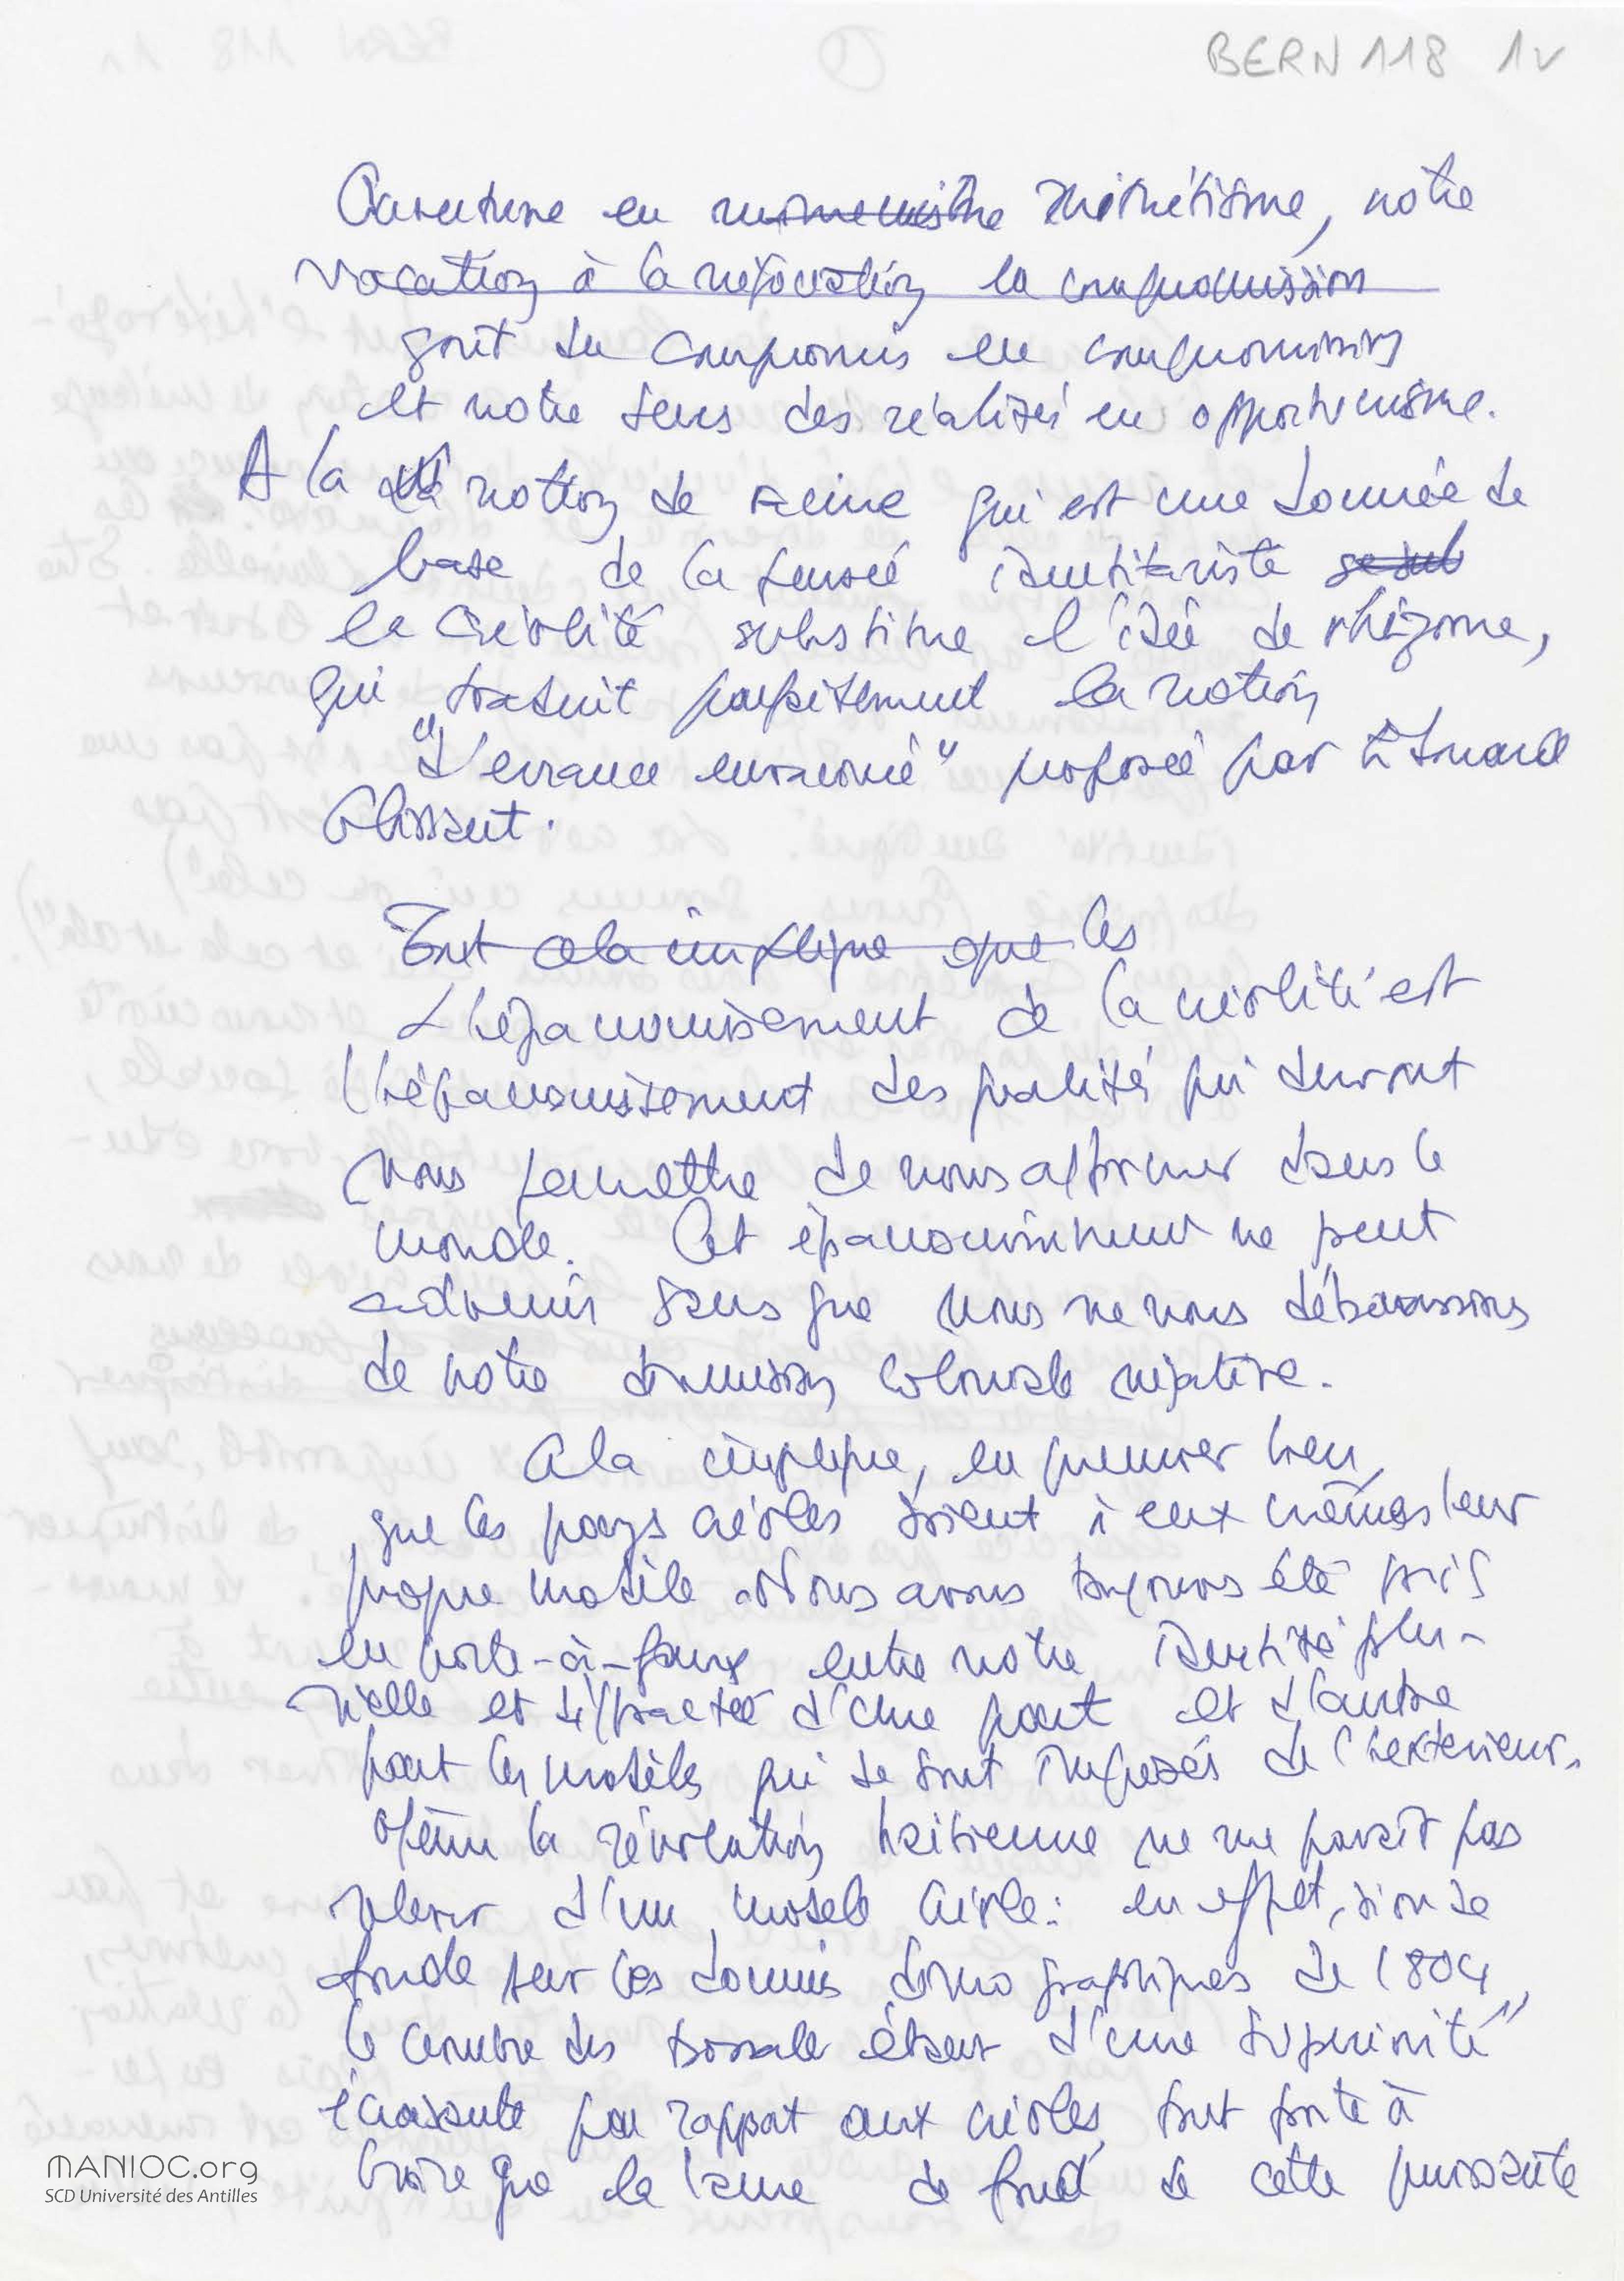 BERN 118 1v
Ouverture en mimétisme, notre
vocation à la négociation la compromission
goût du compromis en compromission
et notre sens des réalités en opportunisme.
A la notion de racine qui est une donnée de
base de la pensée identitariste
la Créolité substitue l'idée de rhizome,
qui traduit parfaitement la notion
"d'errance enracinée" proposée par Edouard
Glissant.
Tout cela implique que les
L'épanouissement de la créolité est
l'épanouissement des qualités qui devront
nous permettre de nous affirmer dans le
monde. Cet épanouissement ne peut
advenir sans que nous ne nous débarrassions
de notre dimension coloniale négative.
Cela implique, en premier lieu,
que les pays créoles soient à eux mêmes leur
propre modèle. Nous avons toujours été pris
en porte-à-faux entre notre identité plu-
rielle et diffractée d'une part et d'autre
part les modèles qui se sont imposés de l'extérieur.
Même la révolution haïtienne ne me paraît pas
relever d'un modèle créole: en effet, si on se
fonde sur les données démographiques de 1804,
le nombre des bossales étant d'une supériorité
écrasante par rapport aux créoles, tout porte à
croire que la lame de fond de cette puissante
MANIOC.org
SCD Université des Antilles